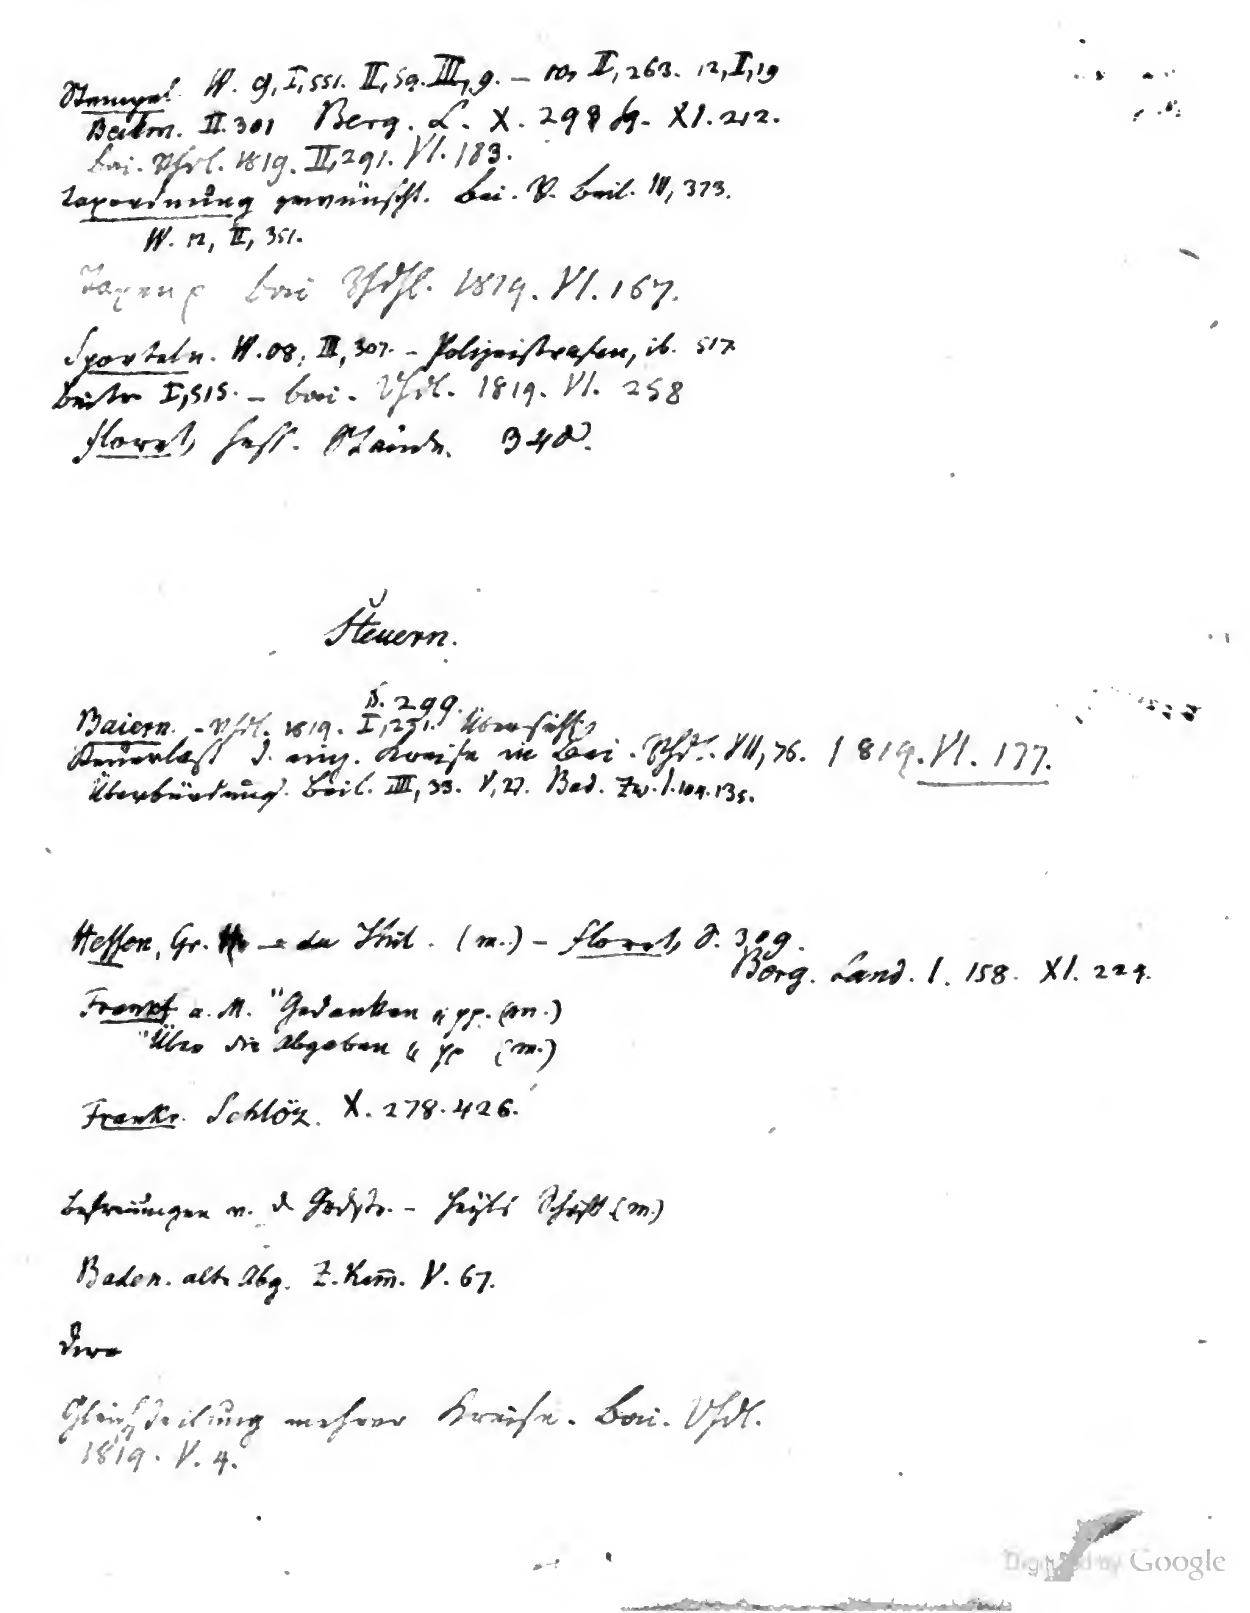 Stempel. W. 9, I, 551. II, 59. III, 9. – 10, II, 263. 12, I, 19
Beitm. II. 301 Berg. L. X. 298 fg. XI. 212.
bai. Vhdl. 1819. II, 291. VI. 183.
Taxordnung gewünscht. Bai. V. Beil. IV, 373.
W. 12, II, 351.
Taxen bai Vhdl. 1819. VI. 167.
Sporteln. W. 08, III, 307. – Polizeistrafen, ib. 517.
Beitr. I, 515. – bai. Vhdl. 1819. VI. 258
Floret, hess. Stände. 340.
Steuern.
S. 299.
Baiern. – Vhdl. 1819. I, 231. Übersicht
Steuerlast d. einz. Kreise in Bai. Vhdl. VII, 76. 1819. VI. 177.
Überbürdung. Beil. III, 33. V, 27. Bad. Zw. I. 104. 135.
Hessen, Gr. (m.) – Floret, S. 309.
Berg. Land. I. 158. XI. 224.
Frankf a. M. "Gedanken pp. (m.)
"Über die Abgaben pp (m.)
Frankr. Schlöz. X. 278. 426.
Befreiungen v. d. Schrift (m.)
Baden. alte Abg. 2. Kam̄. V. 67.
Gleichstellung mehrer Kreise. Bai. Vhdl.
1819. V. 4.
Digitized by Google